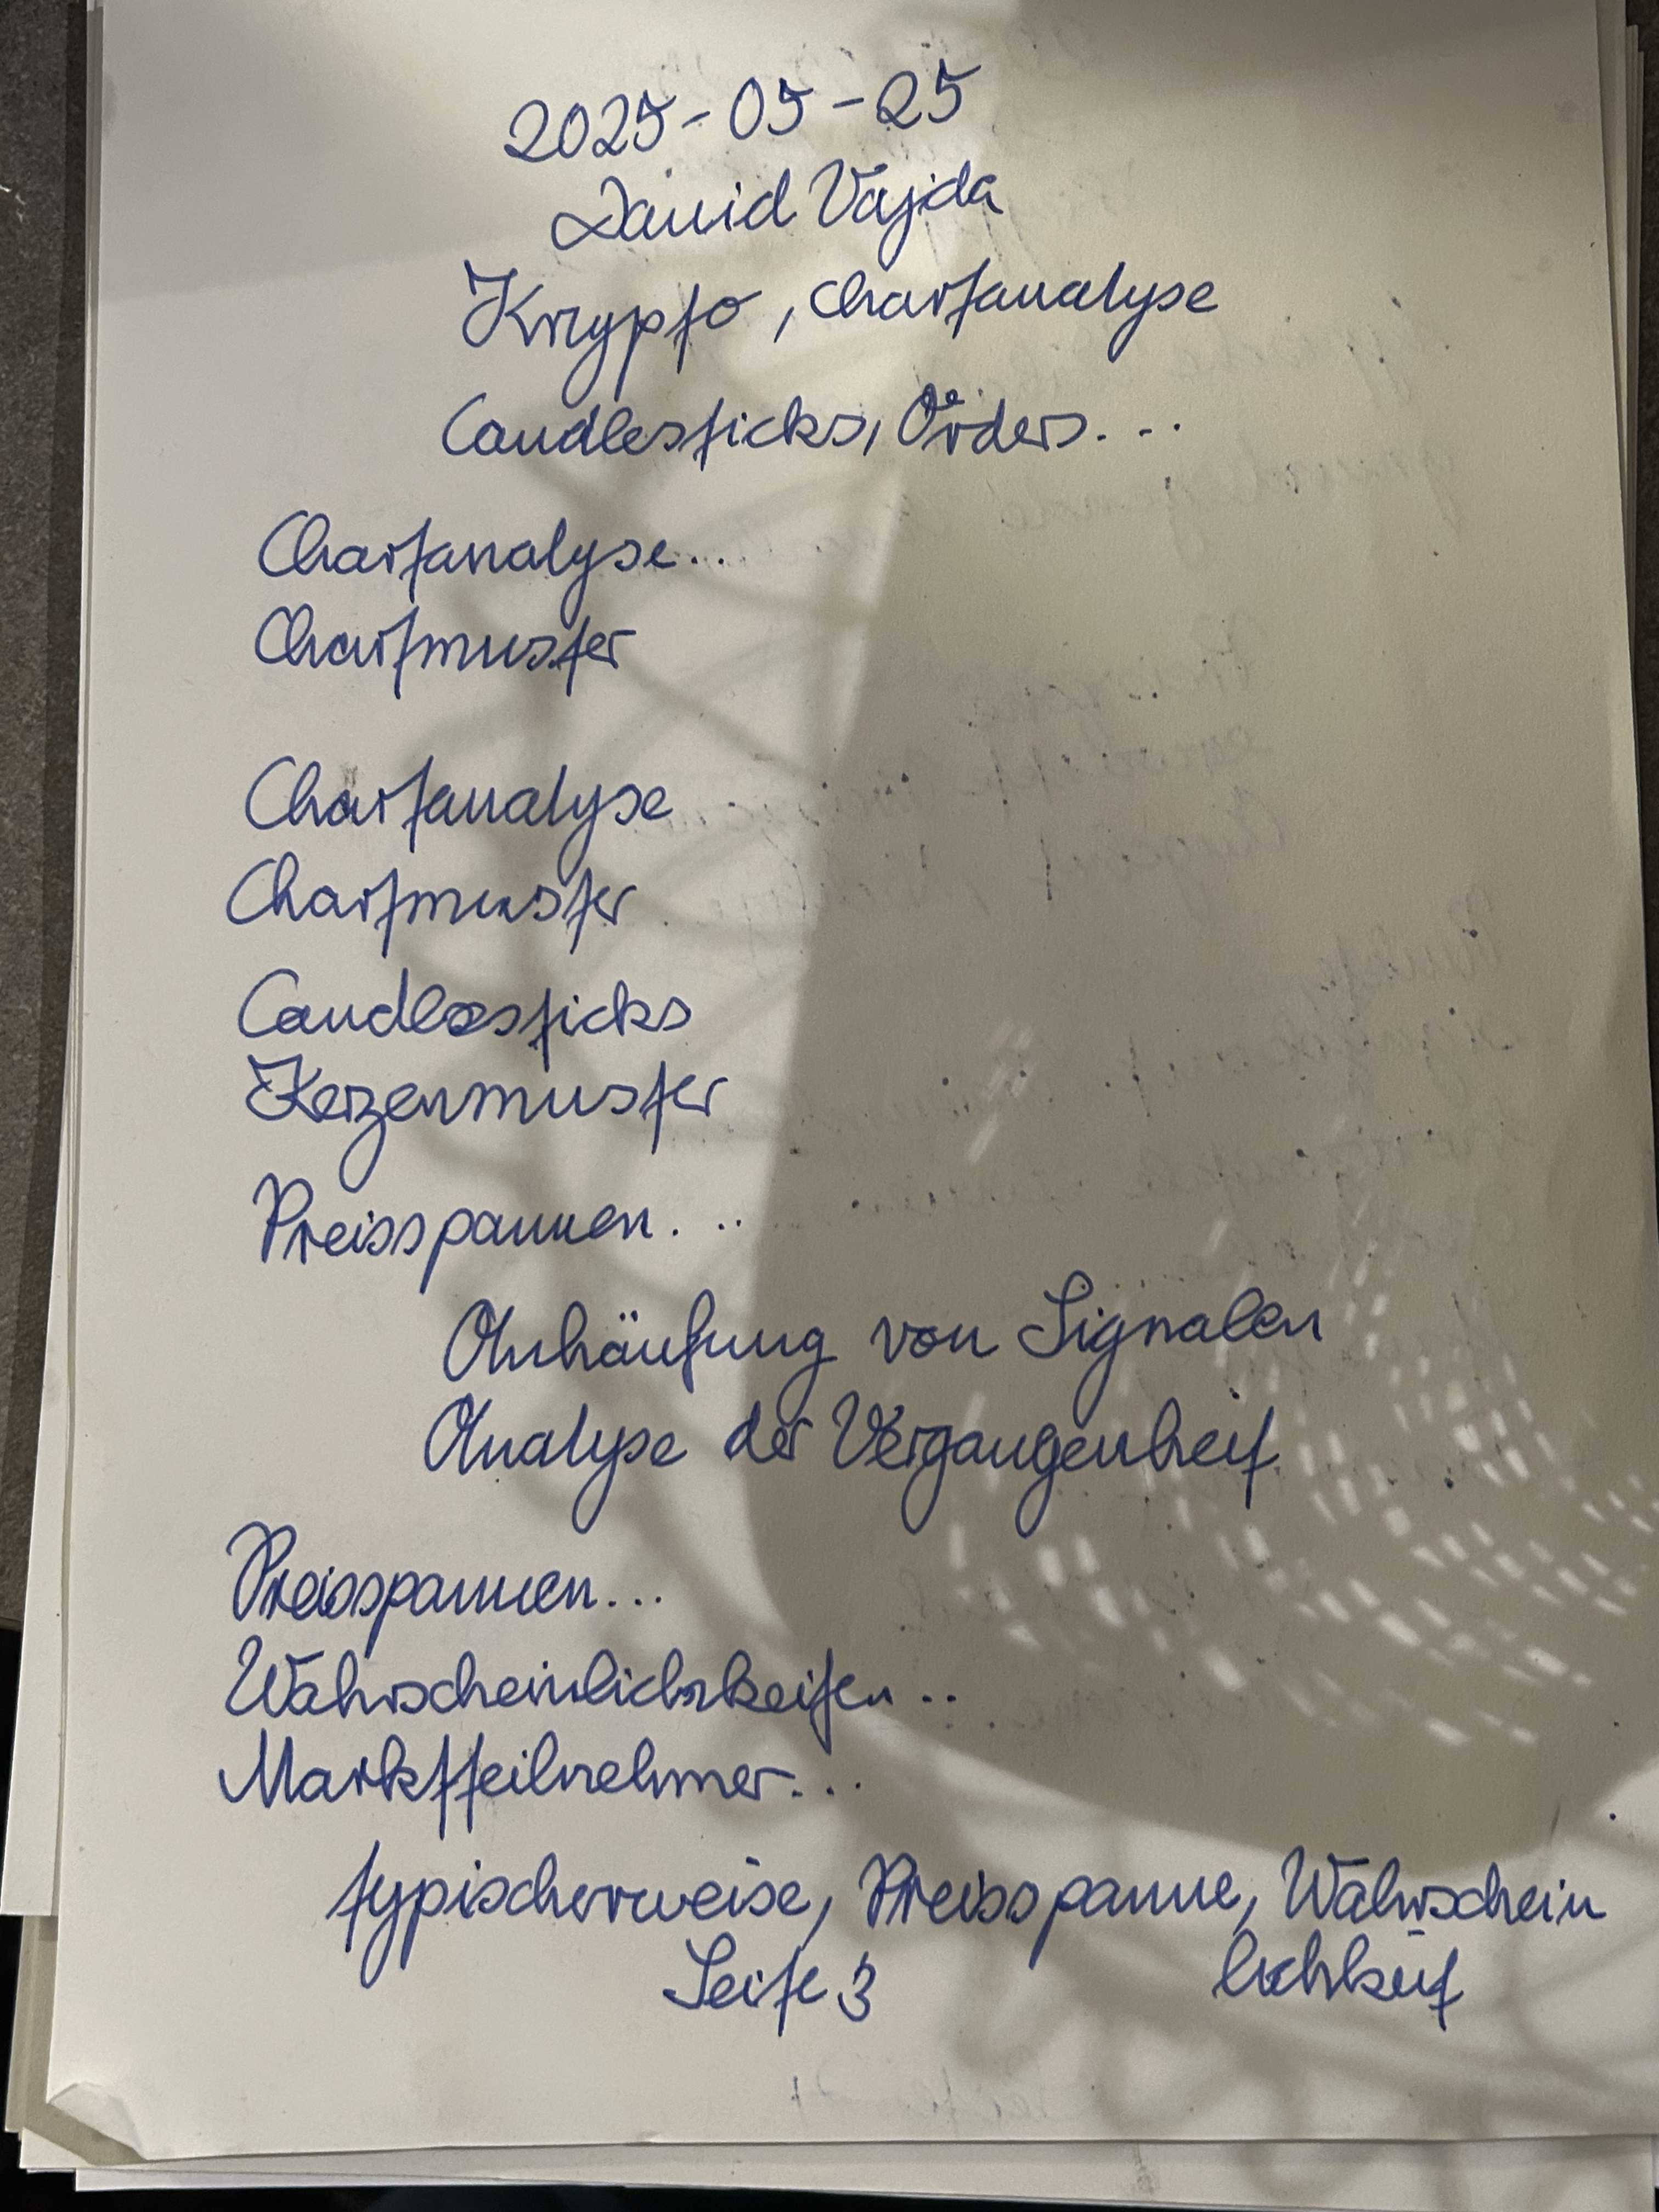 2025-05-25
David Vajda
Krypto, Chartanalyse
Candlesticks, Orders...
Chartanalyse...
Chartmuster
Chartanalyse
Chartmuster
Candlesticks
Kerzenmuster
Preisspannen...
Anhäufung von Signalen
Analyse der Vergangenheit
Preisspannen...
Wahrscheinlichkeiten...
Marktteilnehmer...
typischerweise, Preisspanne, Wahrschein
lichkeit
Seite 3